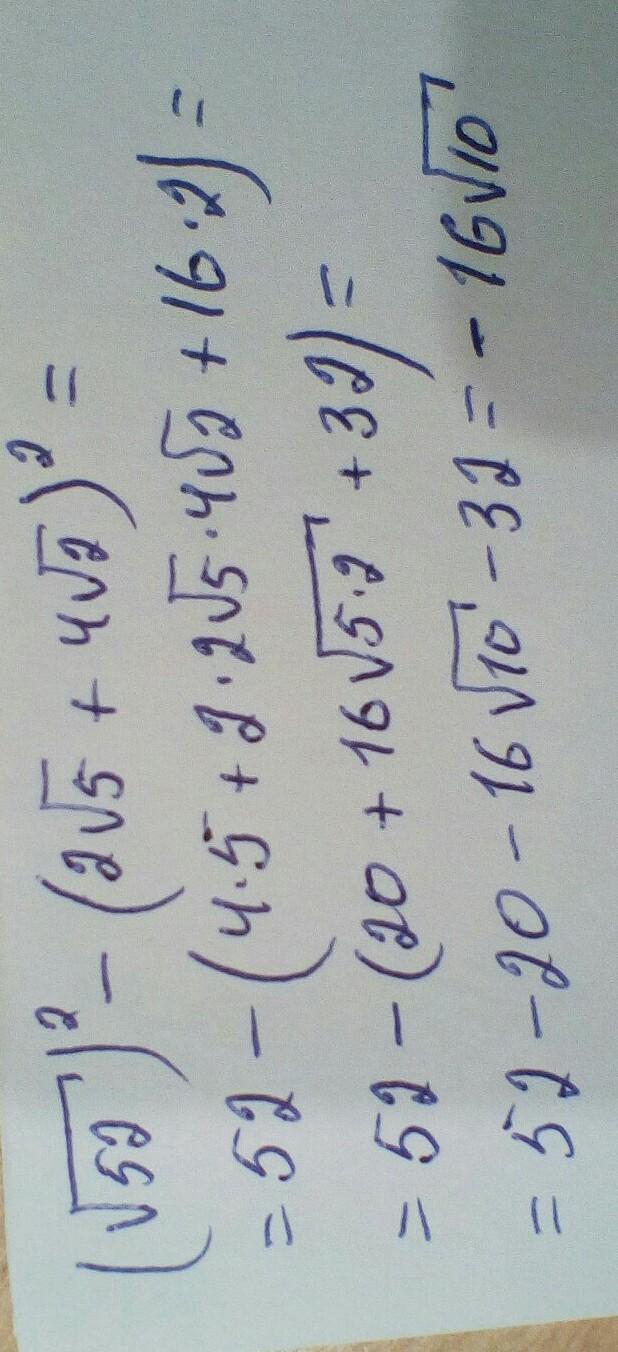 (√52)² - (2√5 + 4√2)² =
= 52 - (4·5 + 2·2√5·4√2 + 16·2) =
= 52 - (20 + 16√5·2 + 32) =
= 52 - 20 - 16√10 - 32 = - 16√10